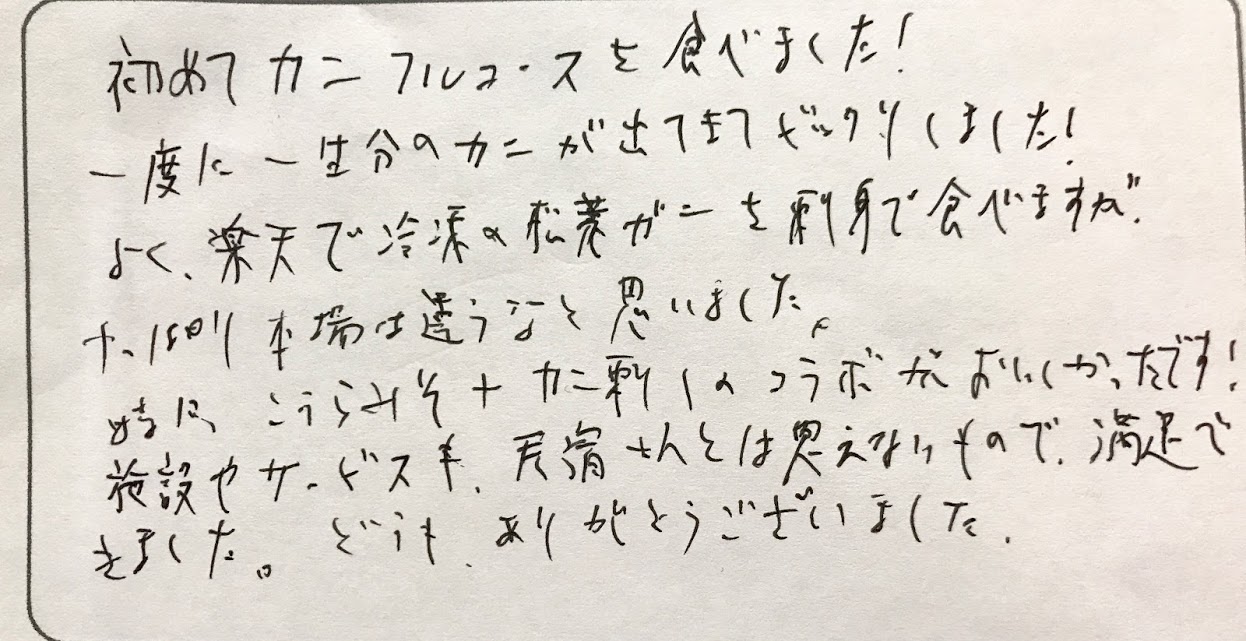 初めてカニフルコースを食べました!
一度に一生分のカニが出てきてビックリしました!
よく、楽天で冷凍の松葉ガニを刺身で食べますが、
やっぱり本場は違うなと思いました。
特に、こうらみそ+カニ刺しのコラボがおいしかったです!
施設やサービスも、民宿さんとは思えないもので、満足で
きました。どうも、ありがとうございました。